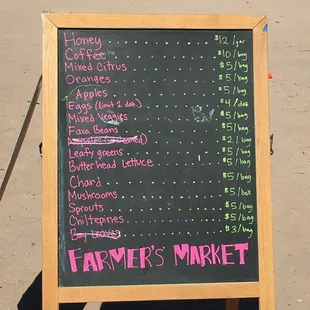 Honey $12/jar
Coffee $10/bag
Mixed Citrus $5/bag
Oranges $5/bag
Apples $5/bag
Eggs (limit 2 doz.) $4/doz
Mixed Veggies $5/bag
Fava Beans $5/bag
$2/bag
Leafy greens $5/bag
Butterhead Lettuce $5/bag
Chard $5/bag
Mushrooms $5/box
Sprouts $5/bag
Chiltepines $5/bag
Bay Leaves $3/bag
FARMER'S MARKET